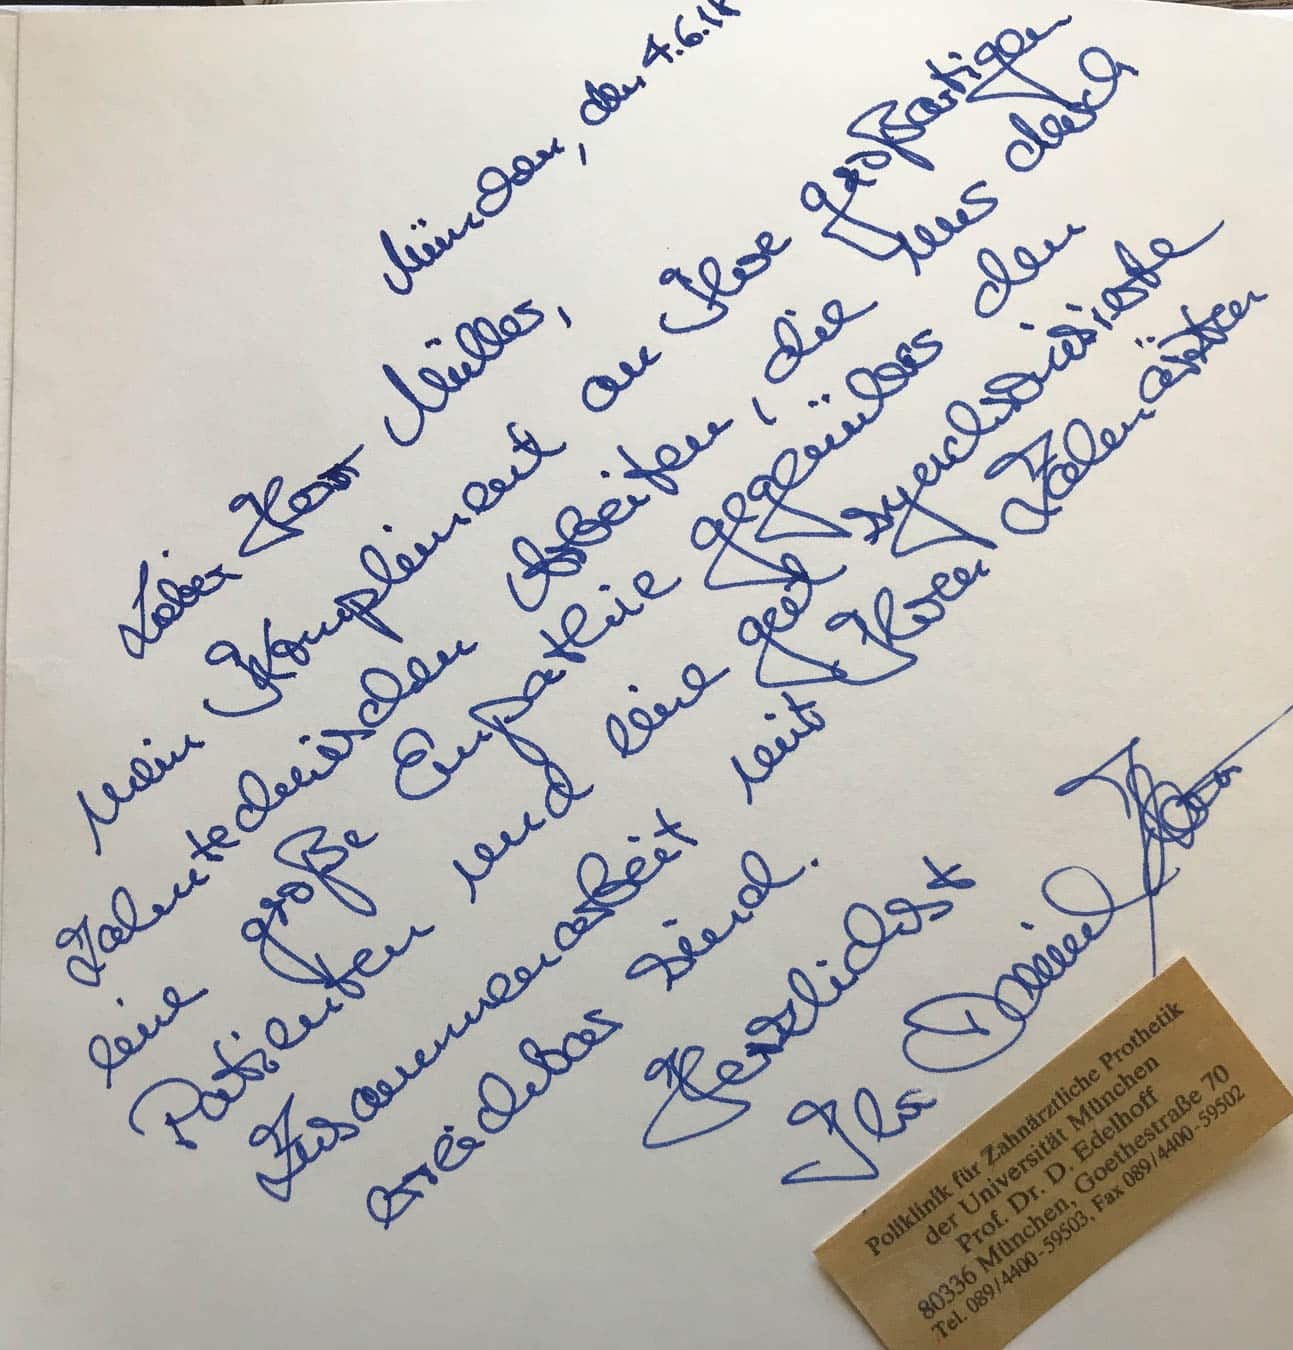 München, den
Lieber Herr Müller,
mein Kompliment an Ihre großartigen
zahntechnischen Arbeiten, die nur durch
eine große Empathie gegenüber den
Patienten und eine gut synchronisierte
Zusammenarbeit mit Ihren Zahnärzten
erreichbar sind.
Herzlichst
Ihr Daniel
Poliklinik für Zahnärztliche Prothetik
der Universität München
Prof. Dr. D. Edelhoff
80336 München, Goethestraße 70
Tel. 089/4400-59503, Fax 089/4400-59502